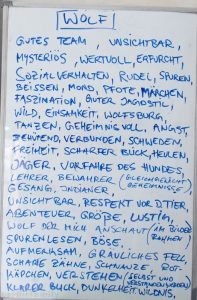 WOLF
GUTES TEAM, UNSICHTBAR,
MYSTERIÖS, WERTVOLL, ERFURCHT,
SOZIALVERHALTEN, RUDEL, SPUREN,
BEISSEN, MORD, PFOTE, MÄRCHEN,
FASZINATION, GUTER
WILD, EINSAMKEIT, WOLFSBURG,
TANZEN, GEHEIMNISVOLL, ANGST,
VERBUNDEN, SCHWEDEN,
FREIHEIT, SCHARFER BLICK, HEULEN,
JÄGER, VORFAHRE DES HUNDES,
LEHRER, BEWAHRER (GLEICHGEWICHT,
GEHEIMNISSE)
GESANG, INDIANER,
UNSICHTBAR, RESPEKT VOR D. TIER,
ABENTEUER, GRÖßE, LUSTIG,
WOLF DER MICH ANSCHAUT (IM BILDER
SPURENLESEN, BÖSE,
AUFMERKSAM, GRAULICHES FELL,
SCHARFE ZÄHNE, SCHNAUZE, ROT-
KÄPCHEN, VERSTEHEN (SELBST UND
VERSTANDEN WERDEN)
KLARER BLICK, DUNKELHEIT, WILDNIS,